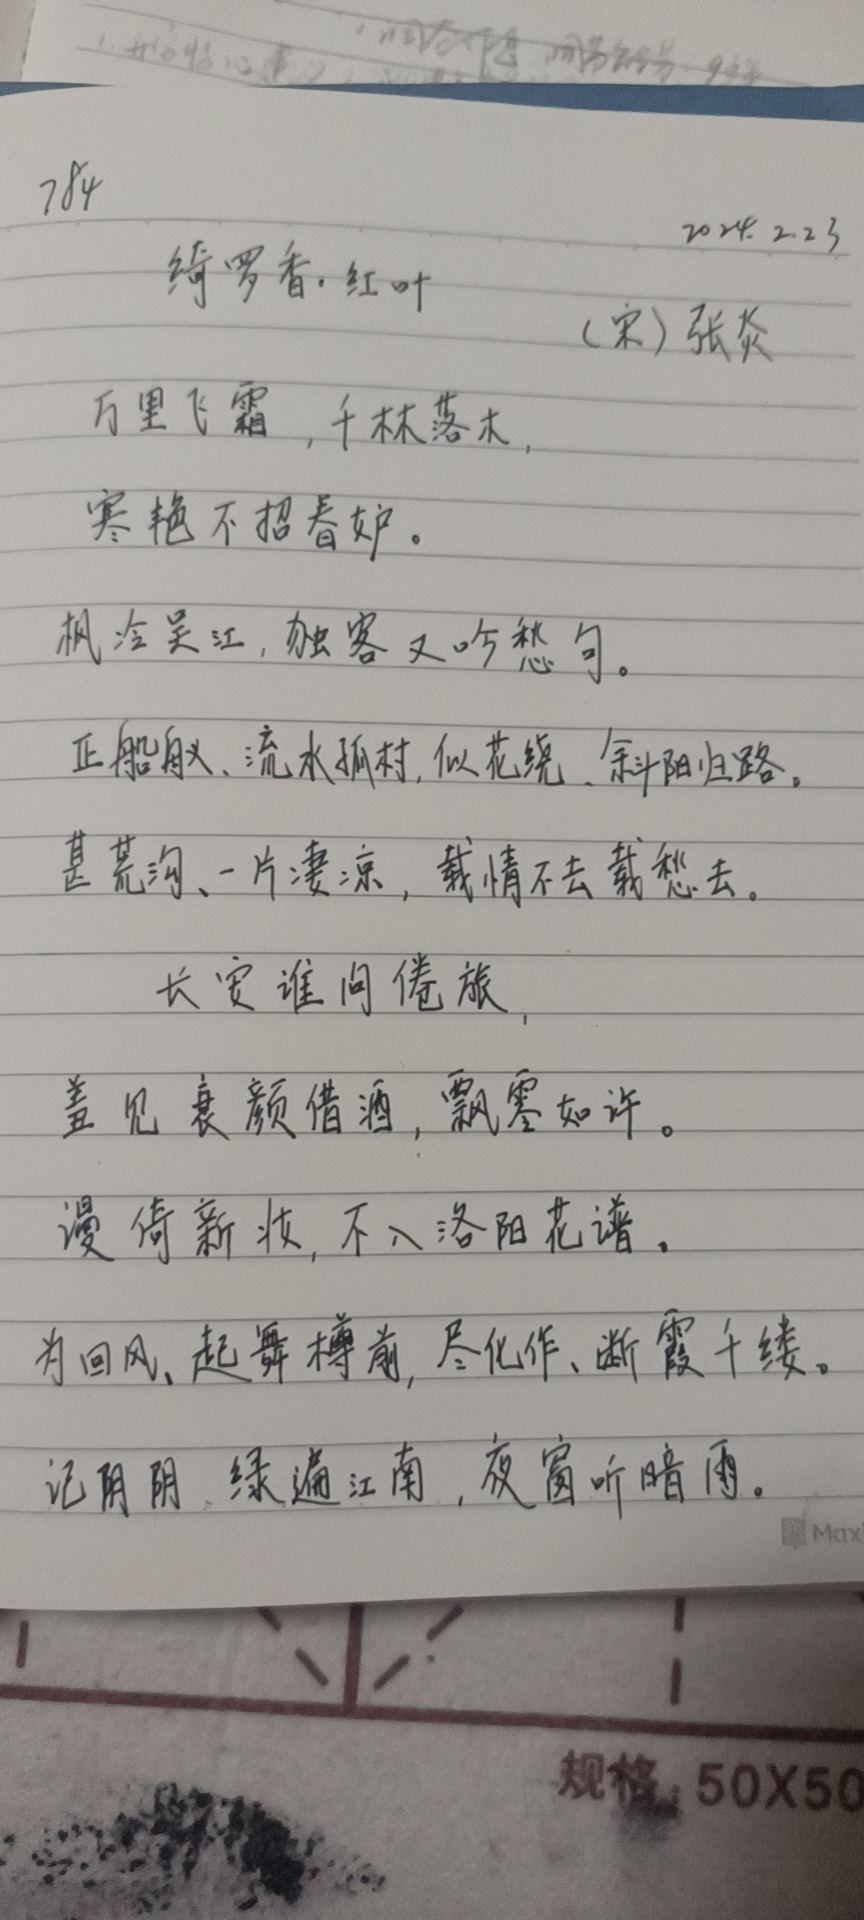 784
2024.2.23
绮罗香·红叶
(宋)张炎
万里飞霜,千林落木,
寒艳不招春妒。
枫冷吴江,独客又吟愁句。
正船舣、流水孤村,似花绕、斜阳归路。
甚荒沟、一片凄凉,载情不去载愁去。
长安谁问倦旅,
羞见衰颜借酒,飘零如许。
谩倚新妆,不入洛阳花谱。
为回风、起舞樽前,尽化作、断霞千缕。
记阴阴、绿遍江南,夜窗听暗雨。
Max
规格:50X50